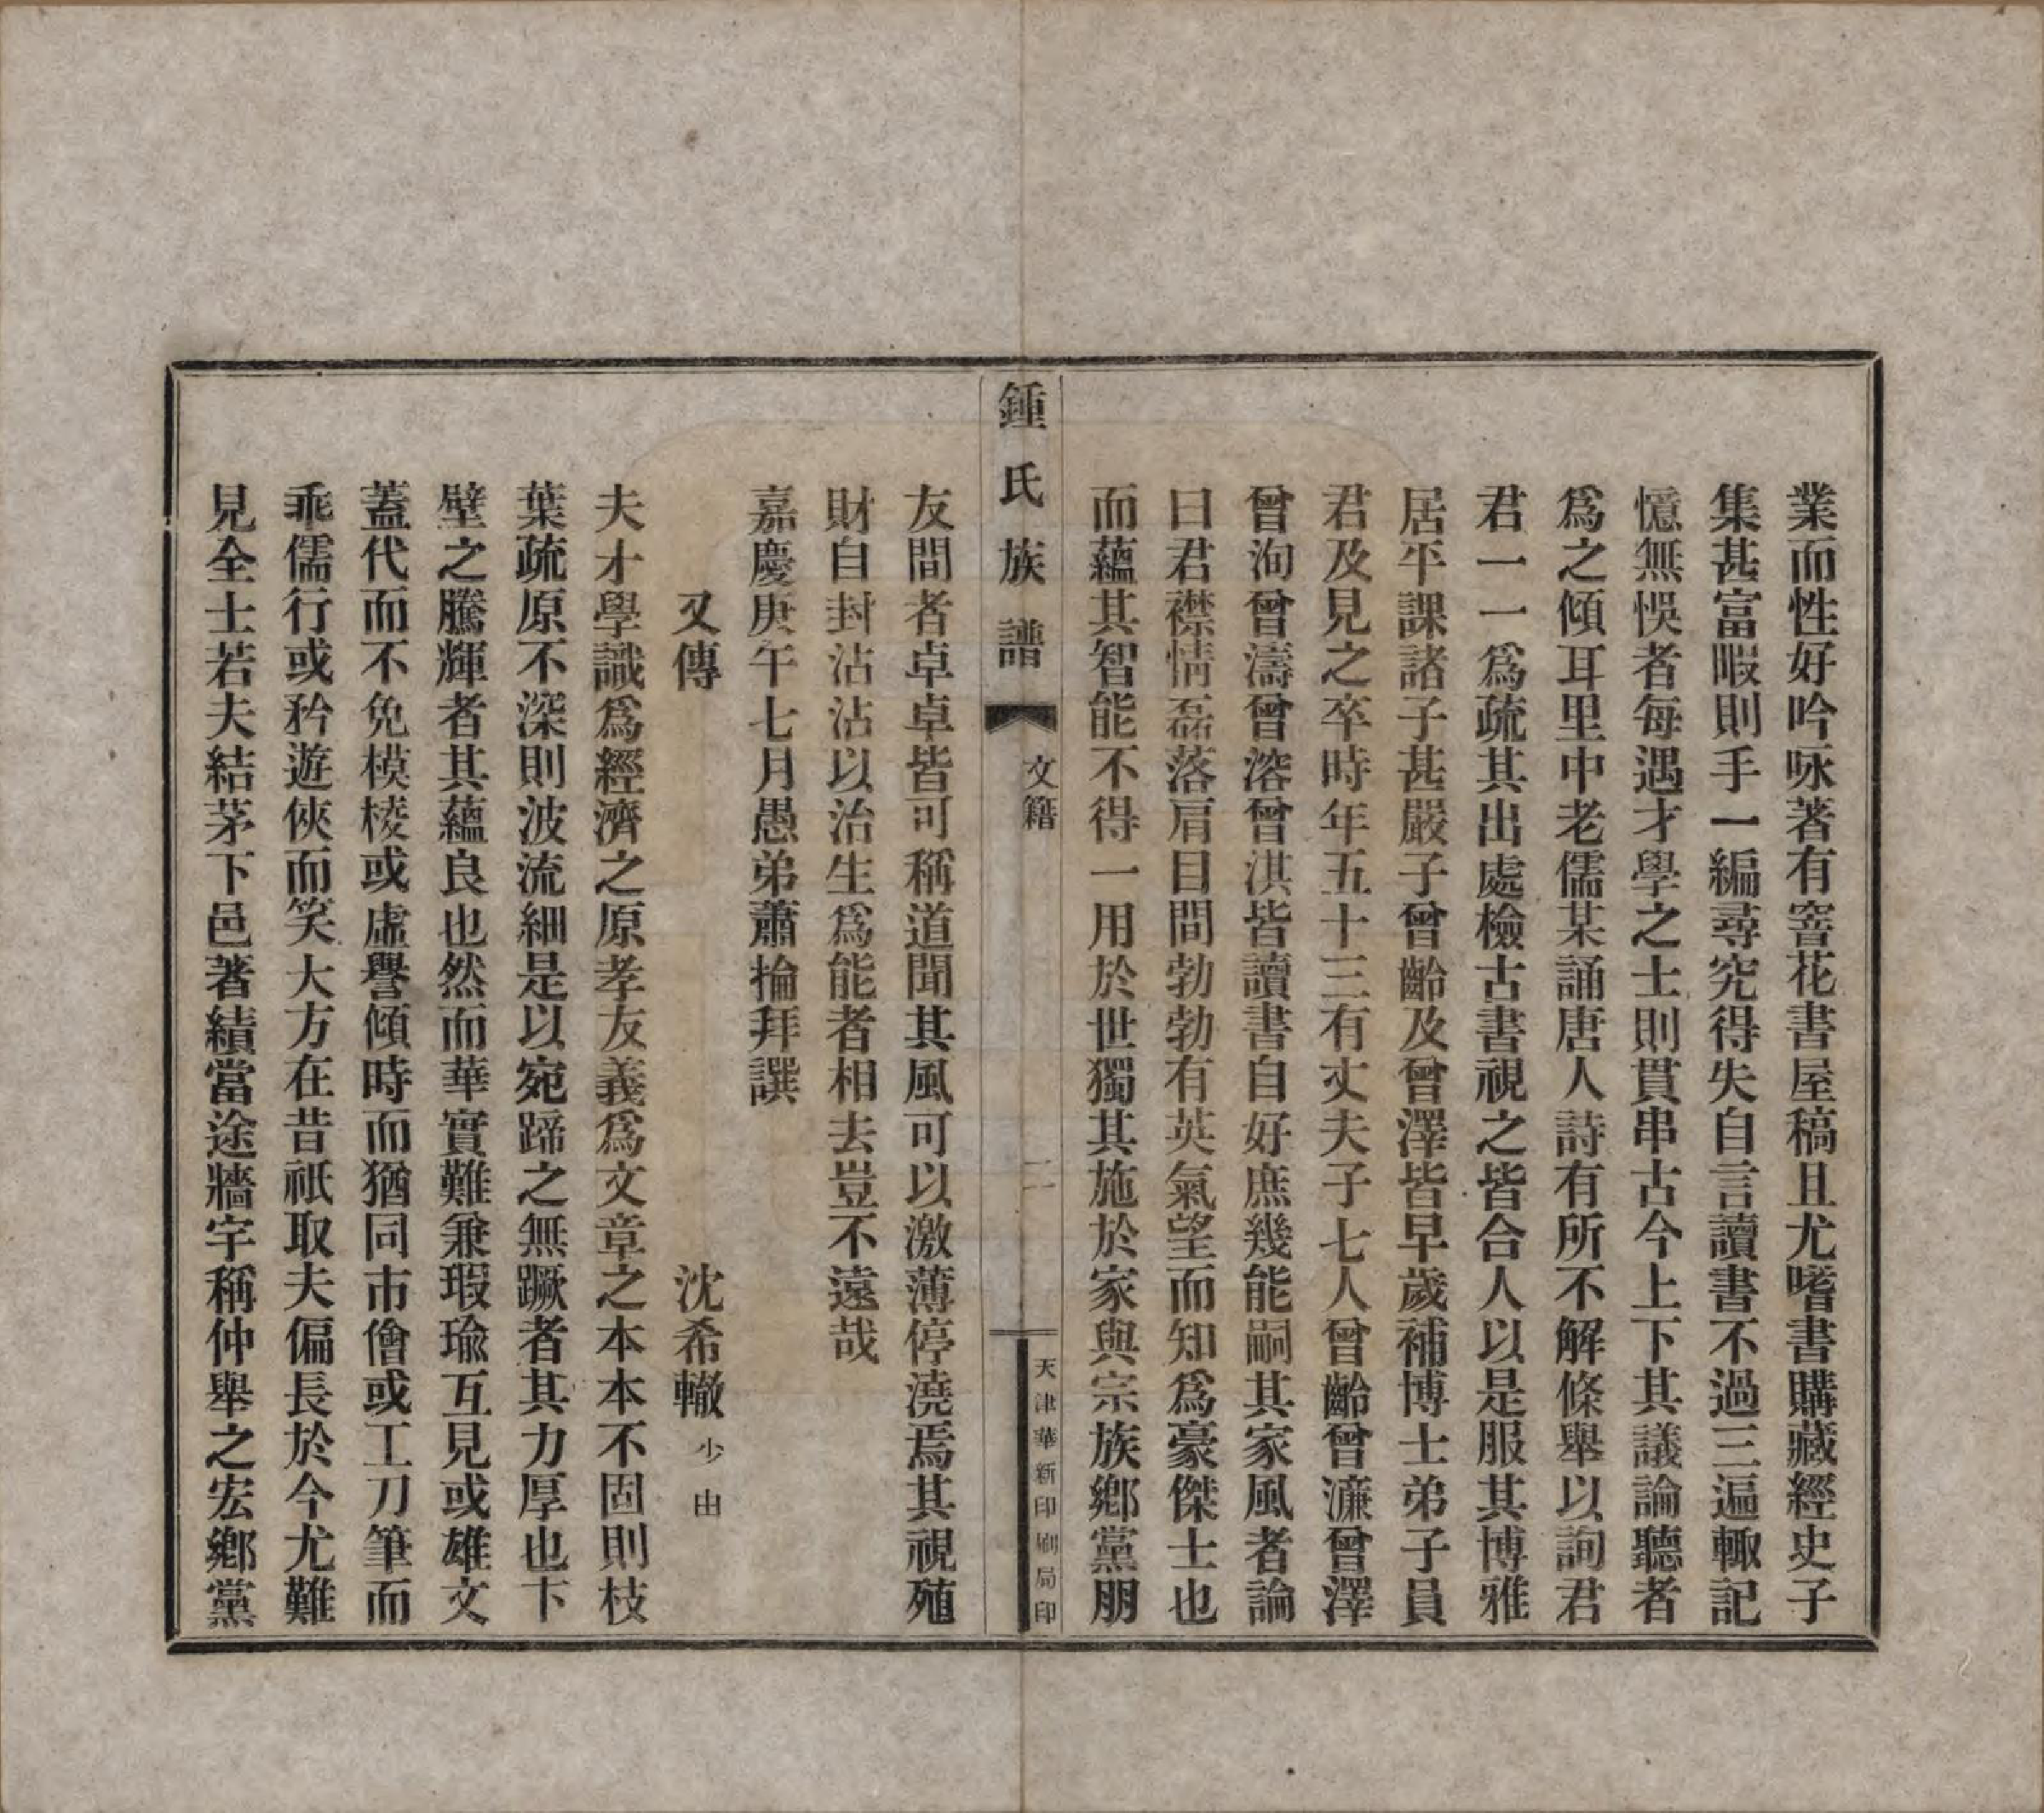 業而性好吟咏著有窖花書屋稿且尤嗜書購藏經史子
集甚富暇則手一編尋究得失自言讀書不過三遍輙記
憶無悞者每遇才學之士則貫串古今上下其議論聽者
爲之傾耳里中老儒某誦唐人詩有所不解條舉以詢君
君一一爲疏其出處檢古書視之皆合人以是服其博雅
居平課諸子甚嚴子曾齡及曾澤皆早歲補博士弟子員
君及見之卒時年五十三有丈夫子七人曾齡曾濂曾澤
曾洵曾濤曾溶曾淇皆讀書自好庶幾能嗣其家風者論
曰君襟情磊落眉目間勃勃有英氣望而知爲豪傑士也
而蘊其智能不得一用於世獨其施於家與宗族鄉黨朋
鍾氏族譜
文籍
二一
天津華新印刷局印
友間者卓卓皆可稱道聞其風可以激薄停澆焉其視殖
財自封沾沾以治生爲能者相去豈不遠哉
嘉慶庚午七月愚弟蕭掄拜譔
又傳
沈希轍少由
夫才學識爲經濟之原孝友義爲文章之本本不固則枝
葉疏原不深則波流細是以宛蹄之無蹶者其力厚也卞
壁之騰輝者其蘊良也然而華實難兼瑕瑜互見或雄文
蓋代而不免模棱或虛譽傾時而猶同市儈或工刀筆而
乖儒行或矜遊俠而笑大方在昔祇取夫偏長於今尤難
見全士若夫結茅下邑著績當途牆宇稱仲舉之宏鄉黨